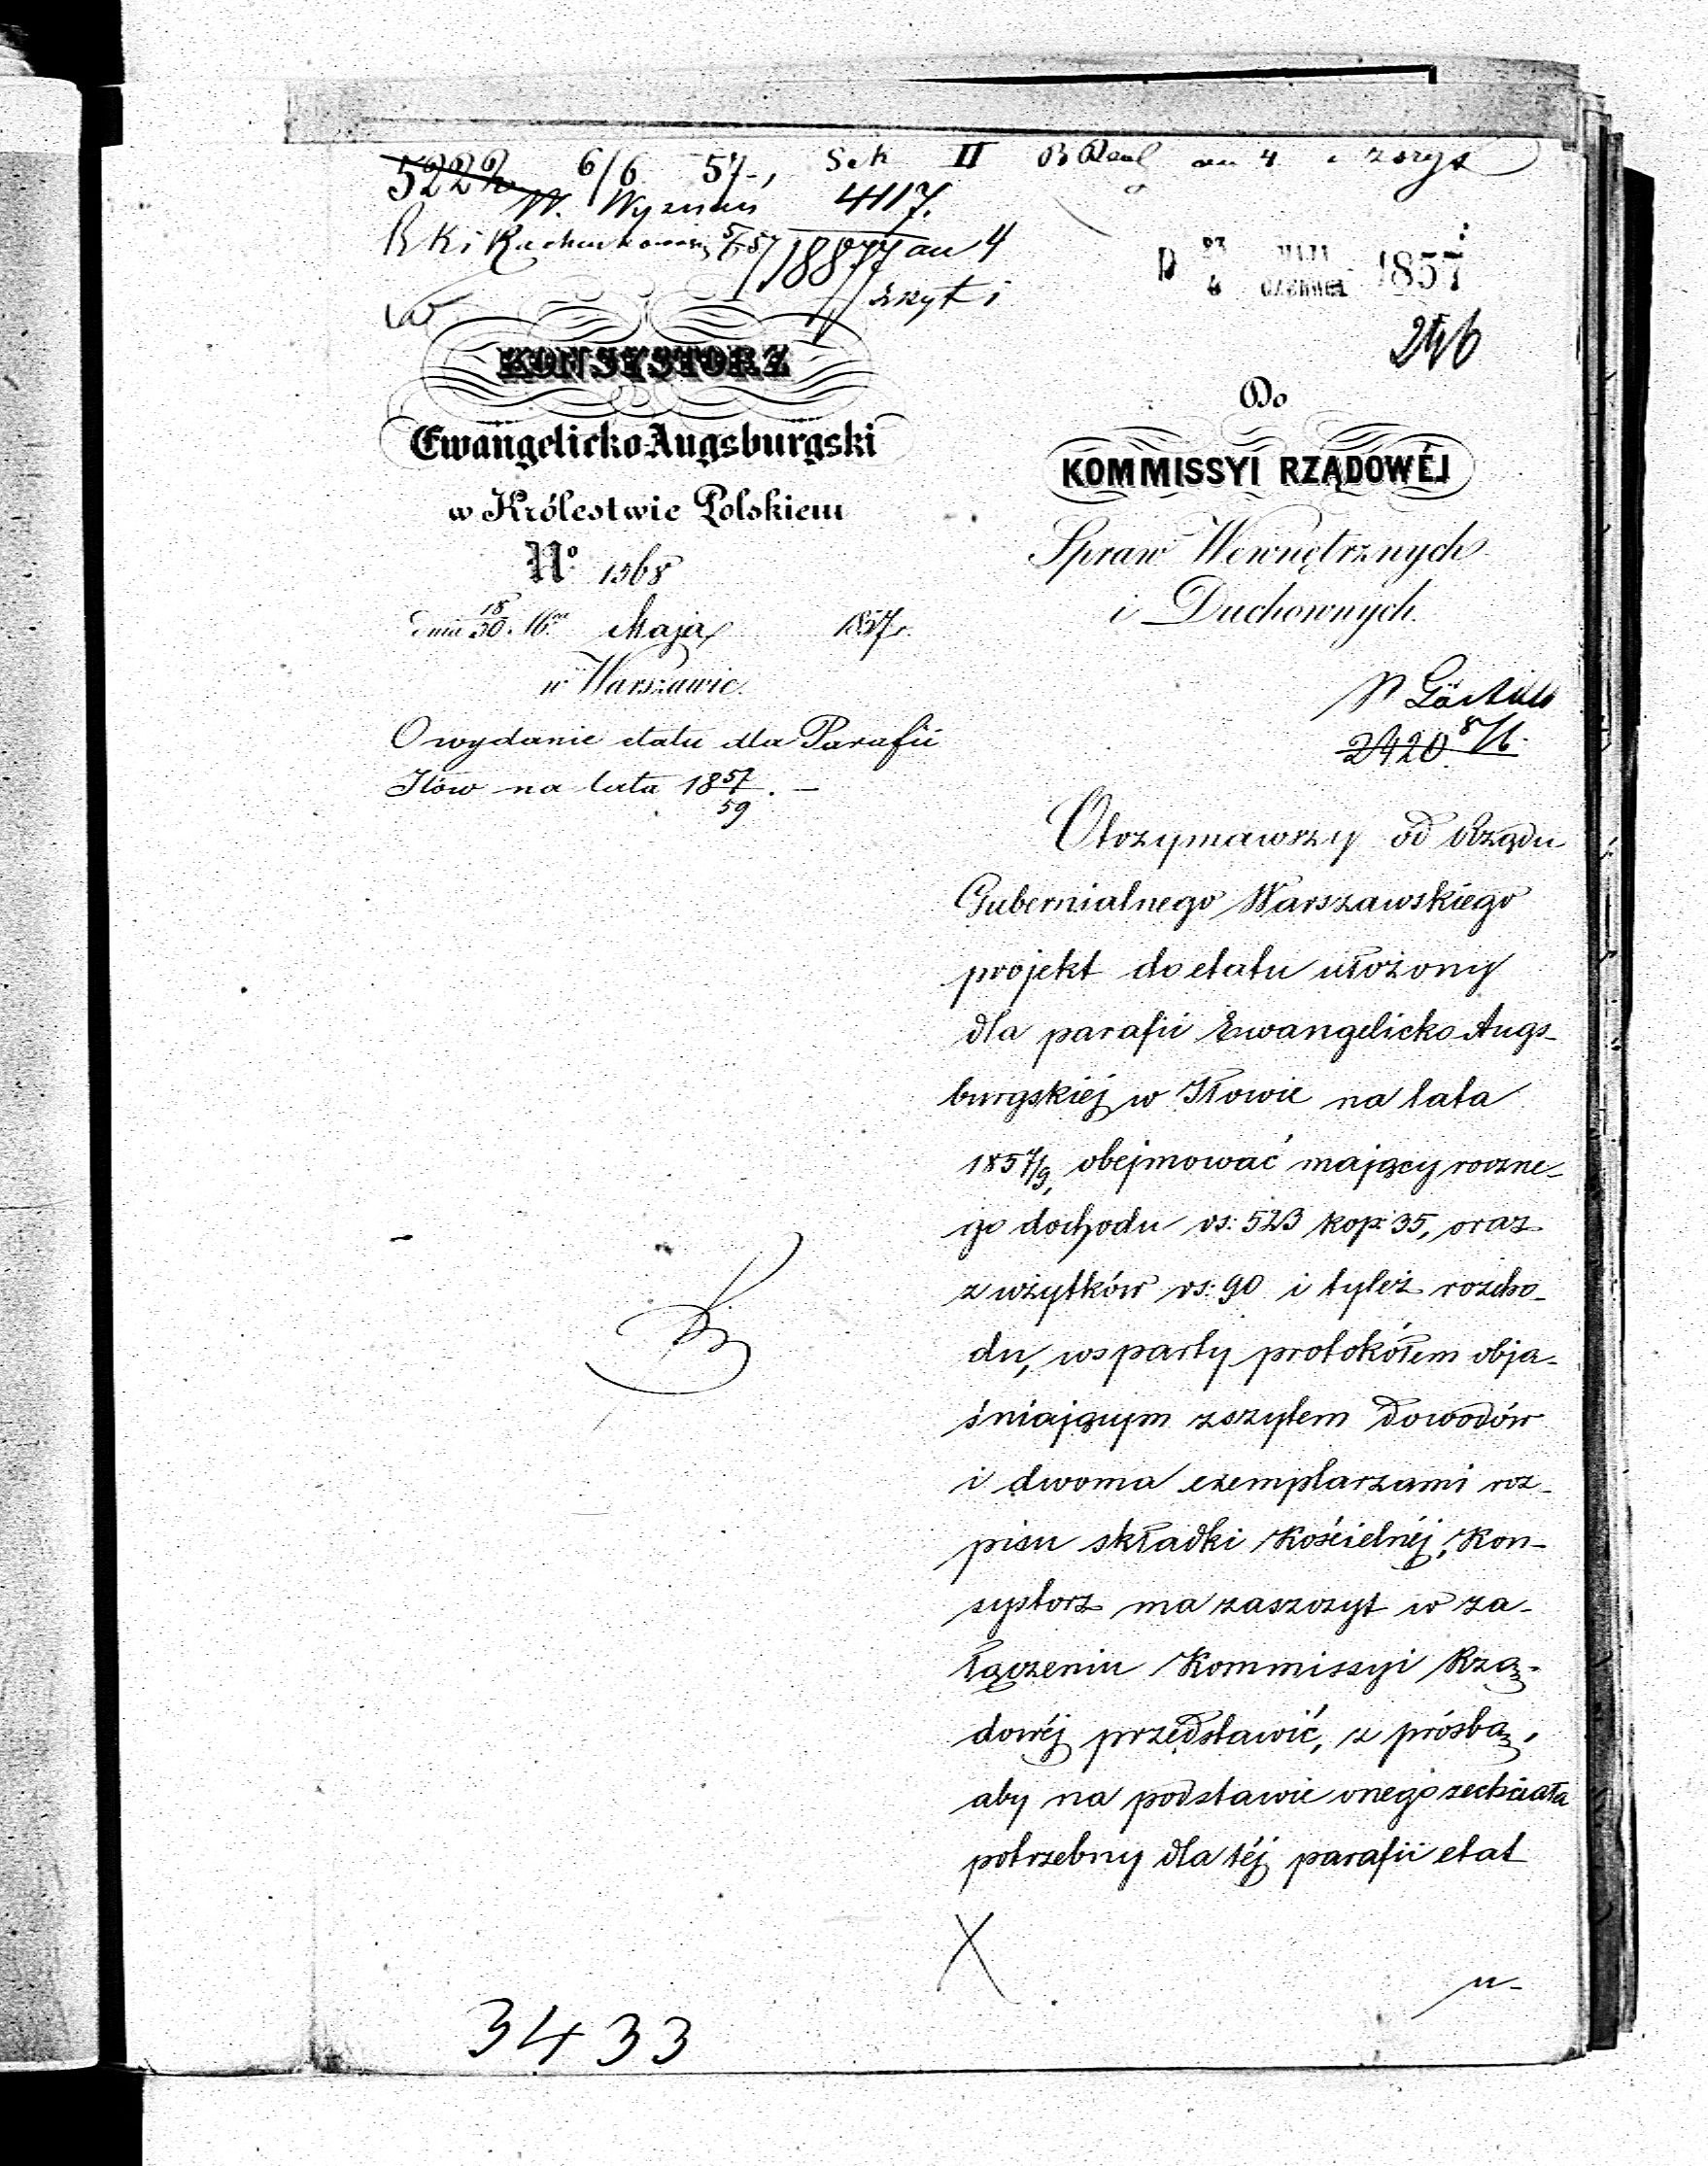 5222 6/6 57., Sek II
W. Wyznań 4117.
18877 an 4
zszyt 1
D 23 MAJA 1857
4 CZERWCA
246
KONSYSTORZ
Ewangelicko-Augsburgski
w Królestwie Polskiem
No 1568
dnia 18/30. Maja 1857 r.
w Warszawie.
O wydanie etatu dla Parafii
Iłów na lata 18 57/59. —
Do
KOMMISSYI RZĄDOWÉJ
Spraw Wewnętrznych
i Duchownych.
2420 8/6.
Otrzymawszy od Rządu
Gubernialnego Warszawskiego
projekt do etatu ułożony
dla parafii Ewangelicko-Augs-
burgskiéj w Iłowie na lata
1857/9, obejmować mający roczne-
go dochodu rs: 523 kop: 35, oraz
z użytków rs: 90 i tyleż rozcho-
du, wsparty protokółem obja-
śniającym zszytem dowodów
i dwoma exemplarzami roz-
pisu składki Kościelnéj, Kon-
systorz ma zaszczyt w za-
łączeniu Kommissyi Rzą-
dowéj przedstawić, z prósbą,
aby na podstawie onego zechciała
potrzebny dla téj parafii etat
u-
3433